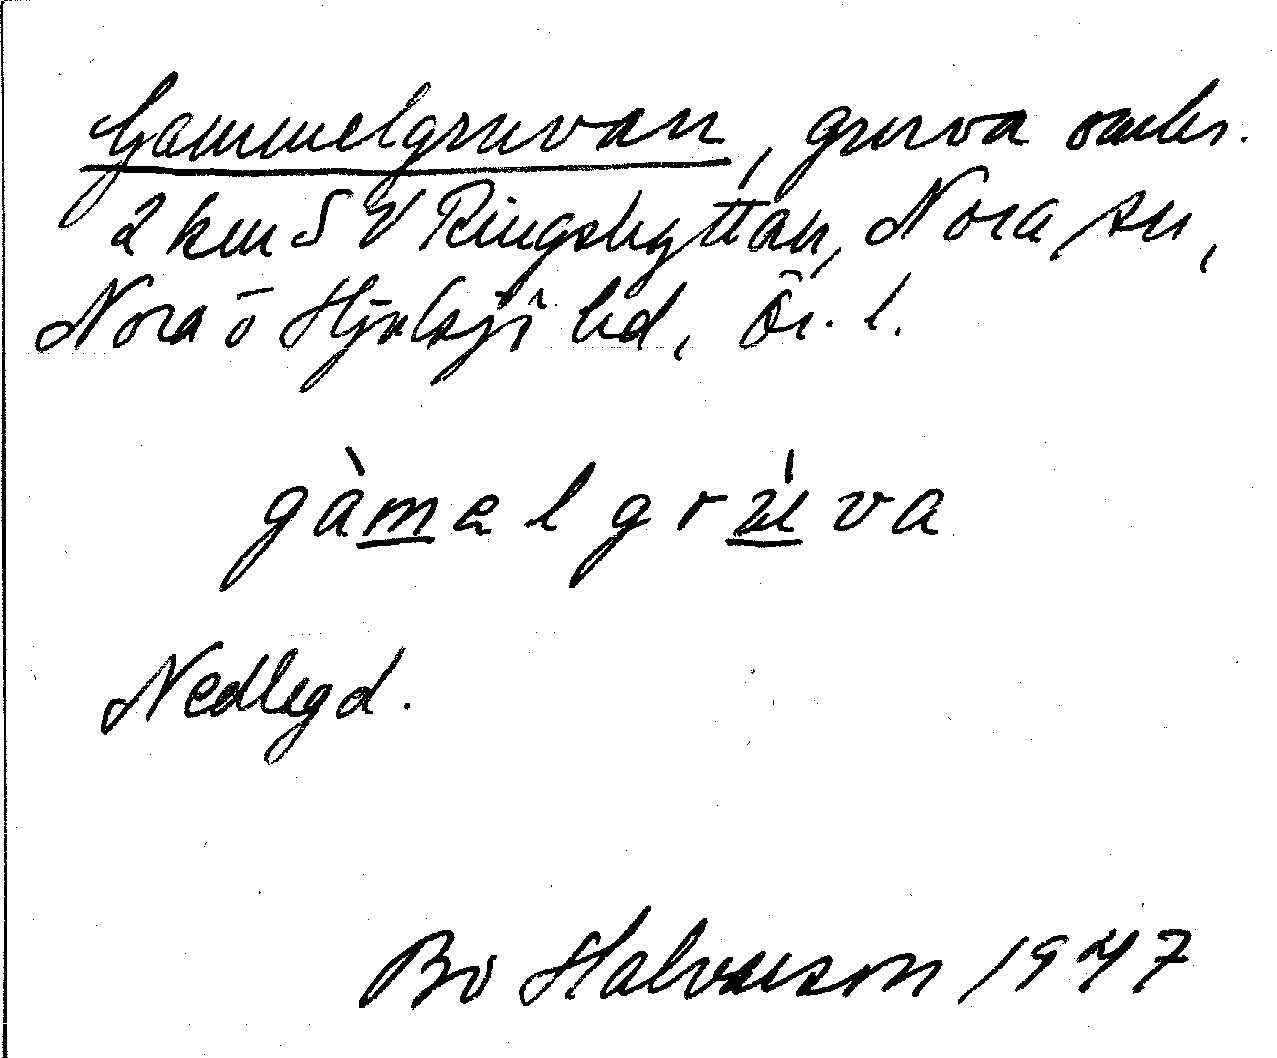 Gammelgruvan, gruva omkr.
2 km SV Ringshyttan, Nora sn,
Nora o Hjulsjö bd, Ör. l.
gàmelgrúva
Nedlagd.
Bo Halvarson 1947